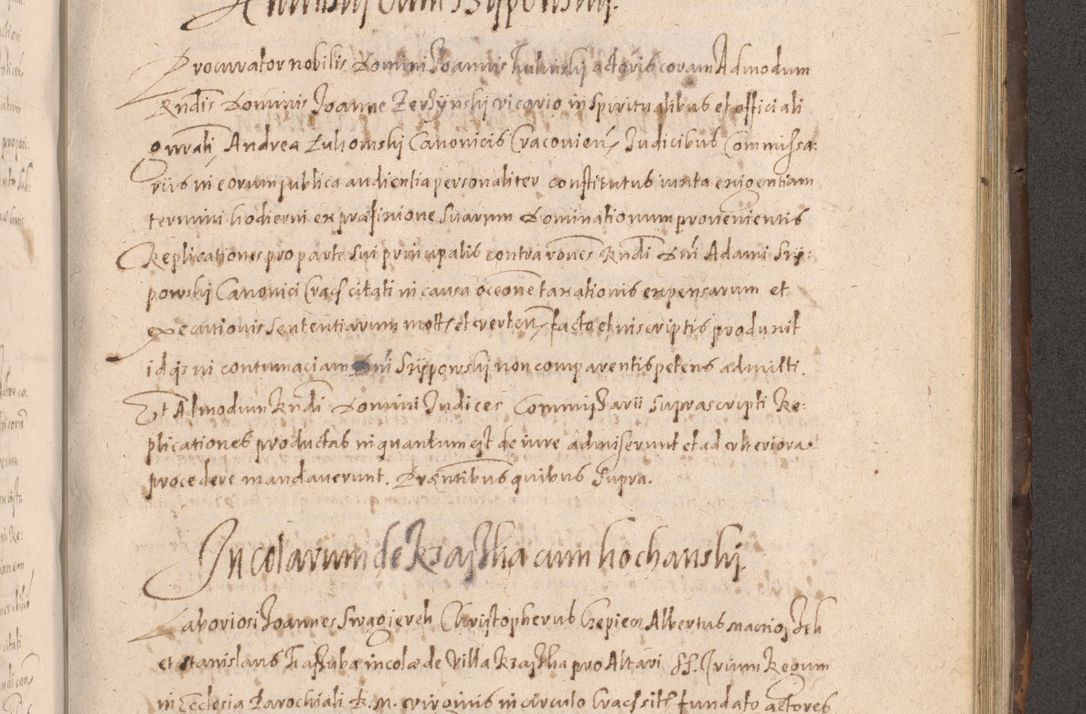 cum Sÿpowskÿ.
Procurator nobilis Domini Joannis actoris coram Admodum
Rndis Dominis Joanne Zerzÿnskÿ vicario in spiritualibus et officiali
gnrali Andrea Zuhowskÿ Canonicis Cracovien Judicibus Commissa:
riis in eorum publica audientia personaliter constitutus iuxta exigentiam
termini hodierni ex præfinione suarum Dominationum provenientis
Replicationes pro parte sui principalis contra rones Rndi Dni Adami Sÿ:
powskÿ Canonici Crac citati in causa occone taxationis expensarum et
executionis sententiarum mott et verten facto et in scriptis produxit
idqs in contumaciam Dni Sÿpowskÿ non comparentis petens admitti.
Et Admodum Rndi Domini Judices Commissarii suprascripti Re:
plicationes productas in quantum est de iure admiserunt et ad ulteriora
procedere mandaverunt. Præntibus quibus supra.
Incolarum de Krzastka cum kochanskÿ
Laboriosi Joannes Christopherus Albertus
et Stanislaus incolæ de Villa pro Altari SS. Trium Regum
in Ecclesia Parochiali B. M. virginis in circulo Crac sit fundato actores